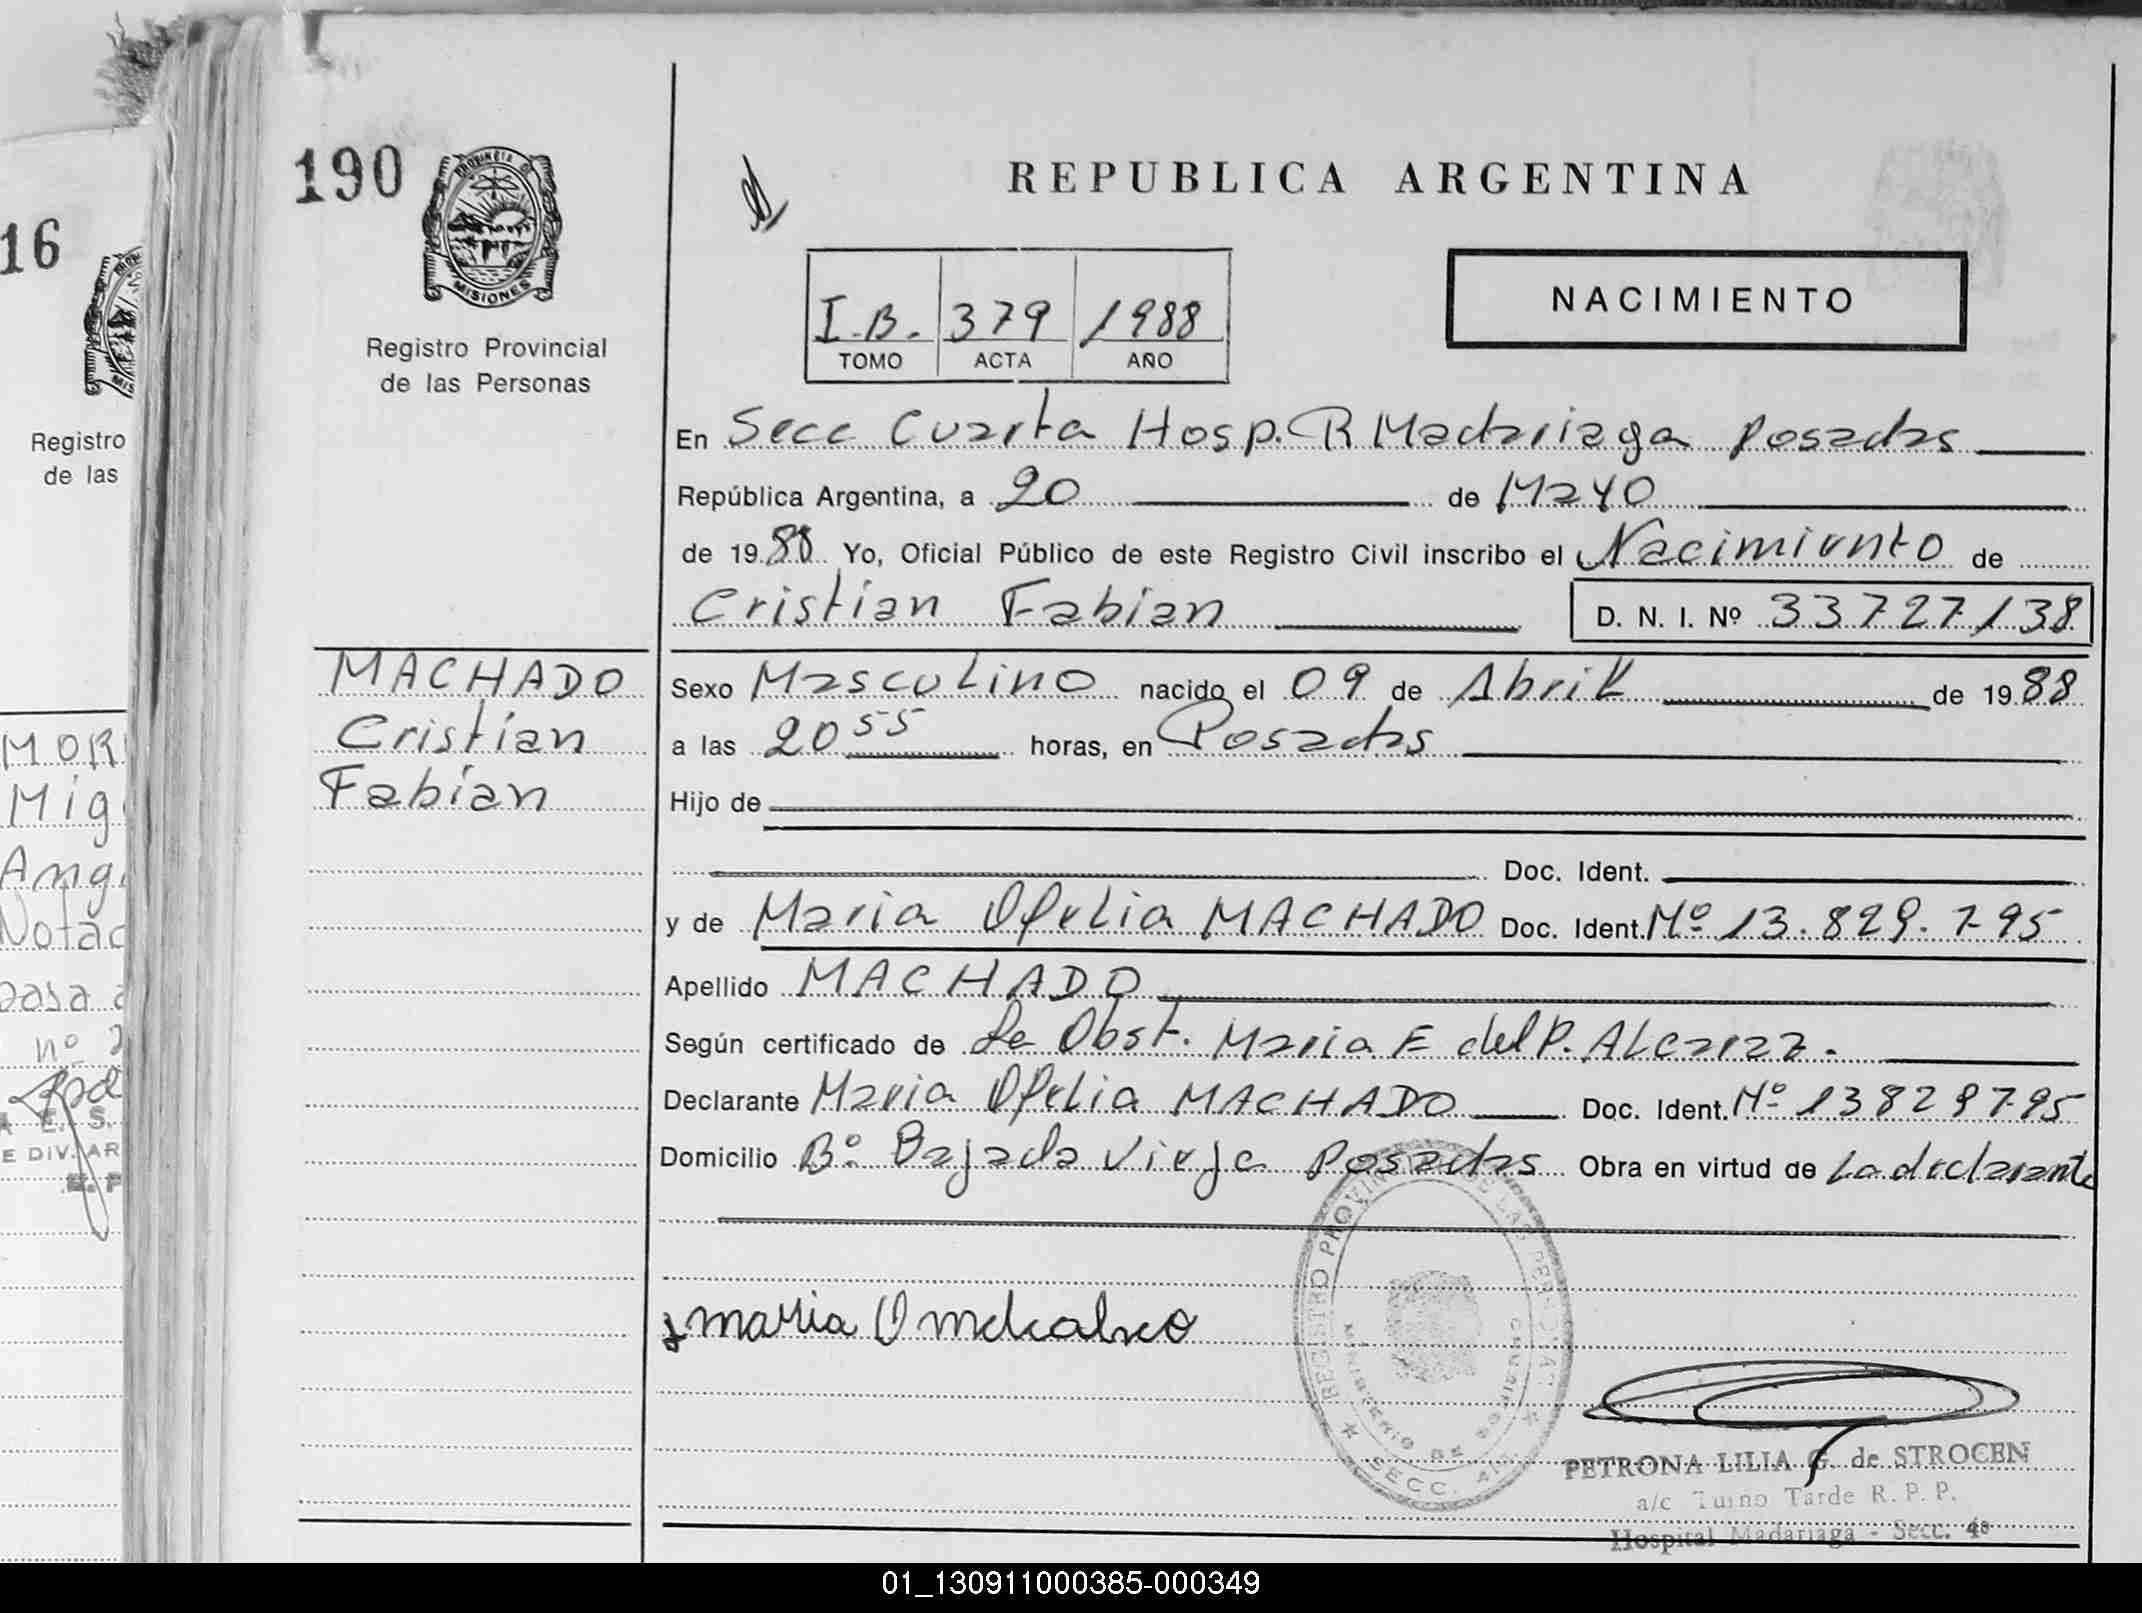 190
PROVINCIA D
MISIONES
Registro Provincial
de las Personas
16
Registro
de las
REPUBLICA ARGENTINA
I.B. 379 1988
TOMO ACTA AÑO
NACIMIENTO
En Secc Cuarta Hosp. R Madariaga Posadas
República Argentina, a 20 de Mayo
de 1988 Yo, Oficial Público de este Registro Civil inscribo el Nacimiento de
Cristian Fabian D. N. I. Nº 33727138
MACHADO
Cristian
Fabian
Sexo Masculino nacido el 09 de Abril de 1988
a las 20 55 horas, en Posadas
Hijo de
Doc. Ident.
y de Maria Ofelia MACHADO Doc. Ident. Nº 13.829.795
Apellido MACHADO
Según certificado de la Obst. Maria E del P. Alcaraz.
Declarante Maria Ofelia MACHADO Doc. Ident. Nº 13829795
Domicilio Bº Bajada Vieja Posadas Obra en virtud de la declarante
MOR
Mig
Ang
Notac
pasa a
nº 2
A E. S.
E DIV. AR
REGISTRO PROVINCIAL DE LAS PERSONAS
SECC. 4ta
maria O
PETRONA LILIA G. de STROCEN
a/c Turno Tarde R. P. P.
Hospital Madariaga - Secc. 4ª
01_130911000385-000349